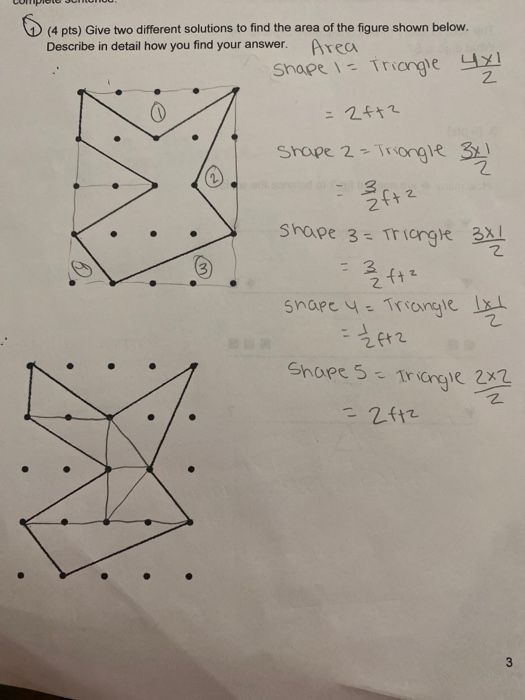 ① (4 pts) Give two different solutions to find the area of the figure shown below.
Describe in detail how you find your answer.
Area
Shape 1 = Triangle 4x1/2
= 2ft2
①
Shape 2 = Triangle 3x1/2
②
= 3/2 ft2
Shape 3 = Triangle 3x1/2
= 3/2 ft2
④
③
Shape 4 = Triangle 1x1/2
= 1/2 ft2
Shape 5 = Triangle 2x2/2
= 2ft2
3